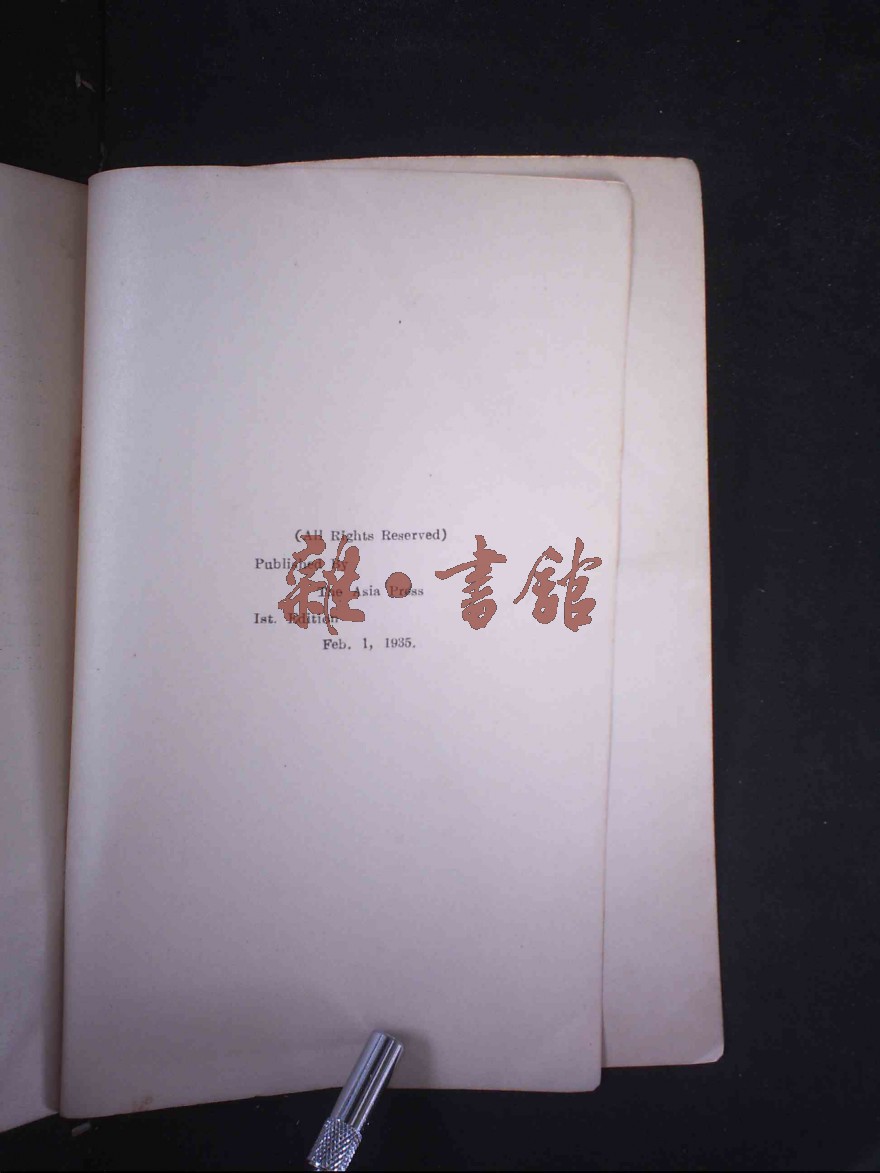 (All Rights Reserved)
Published By
The Asia Press
1st. Edition
Feb. 1, 1935.
雜·書館